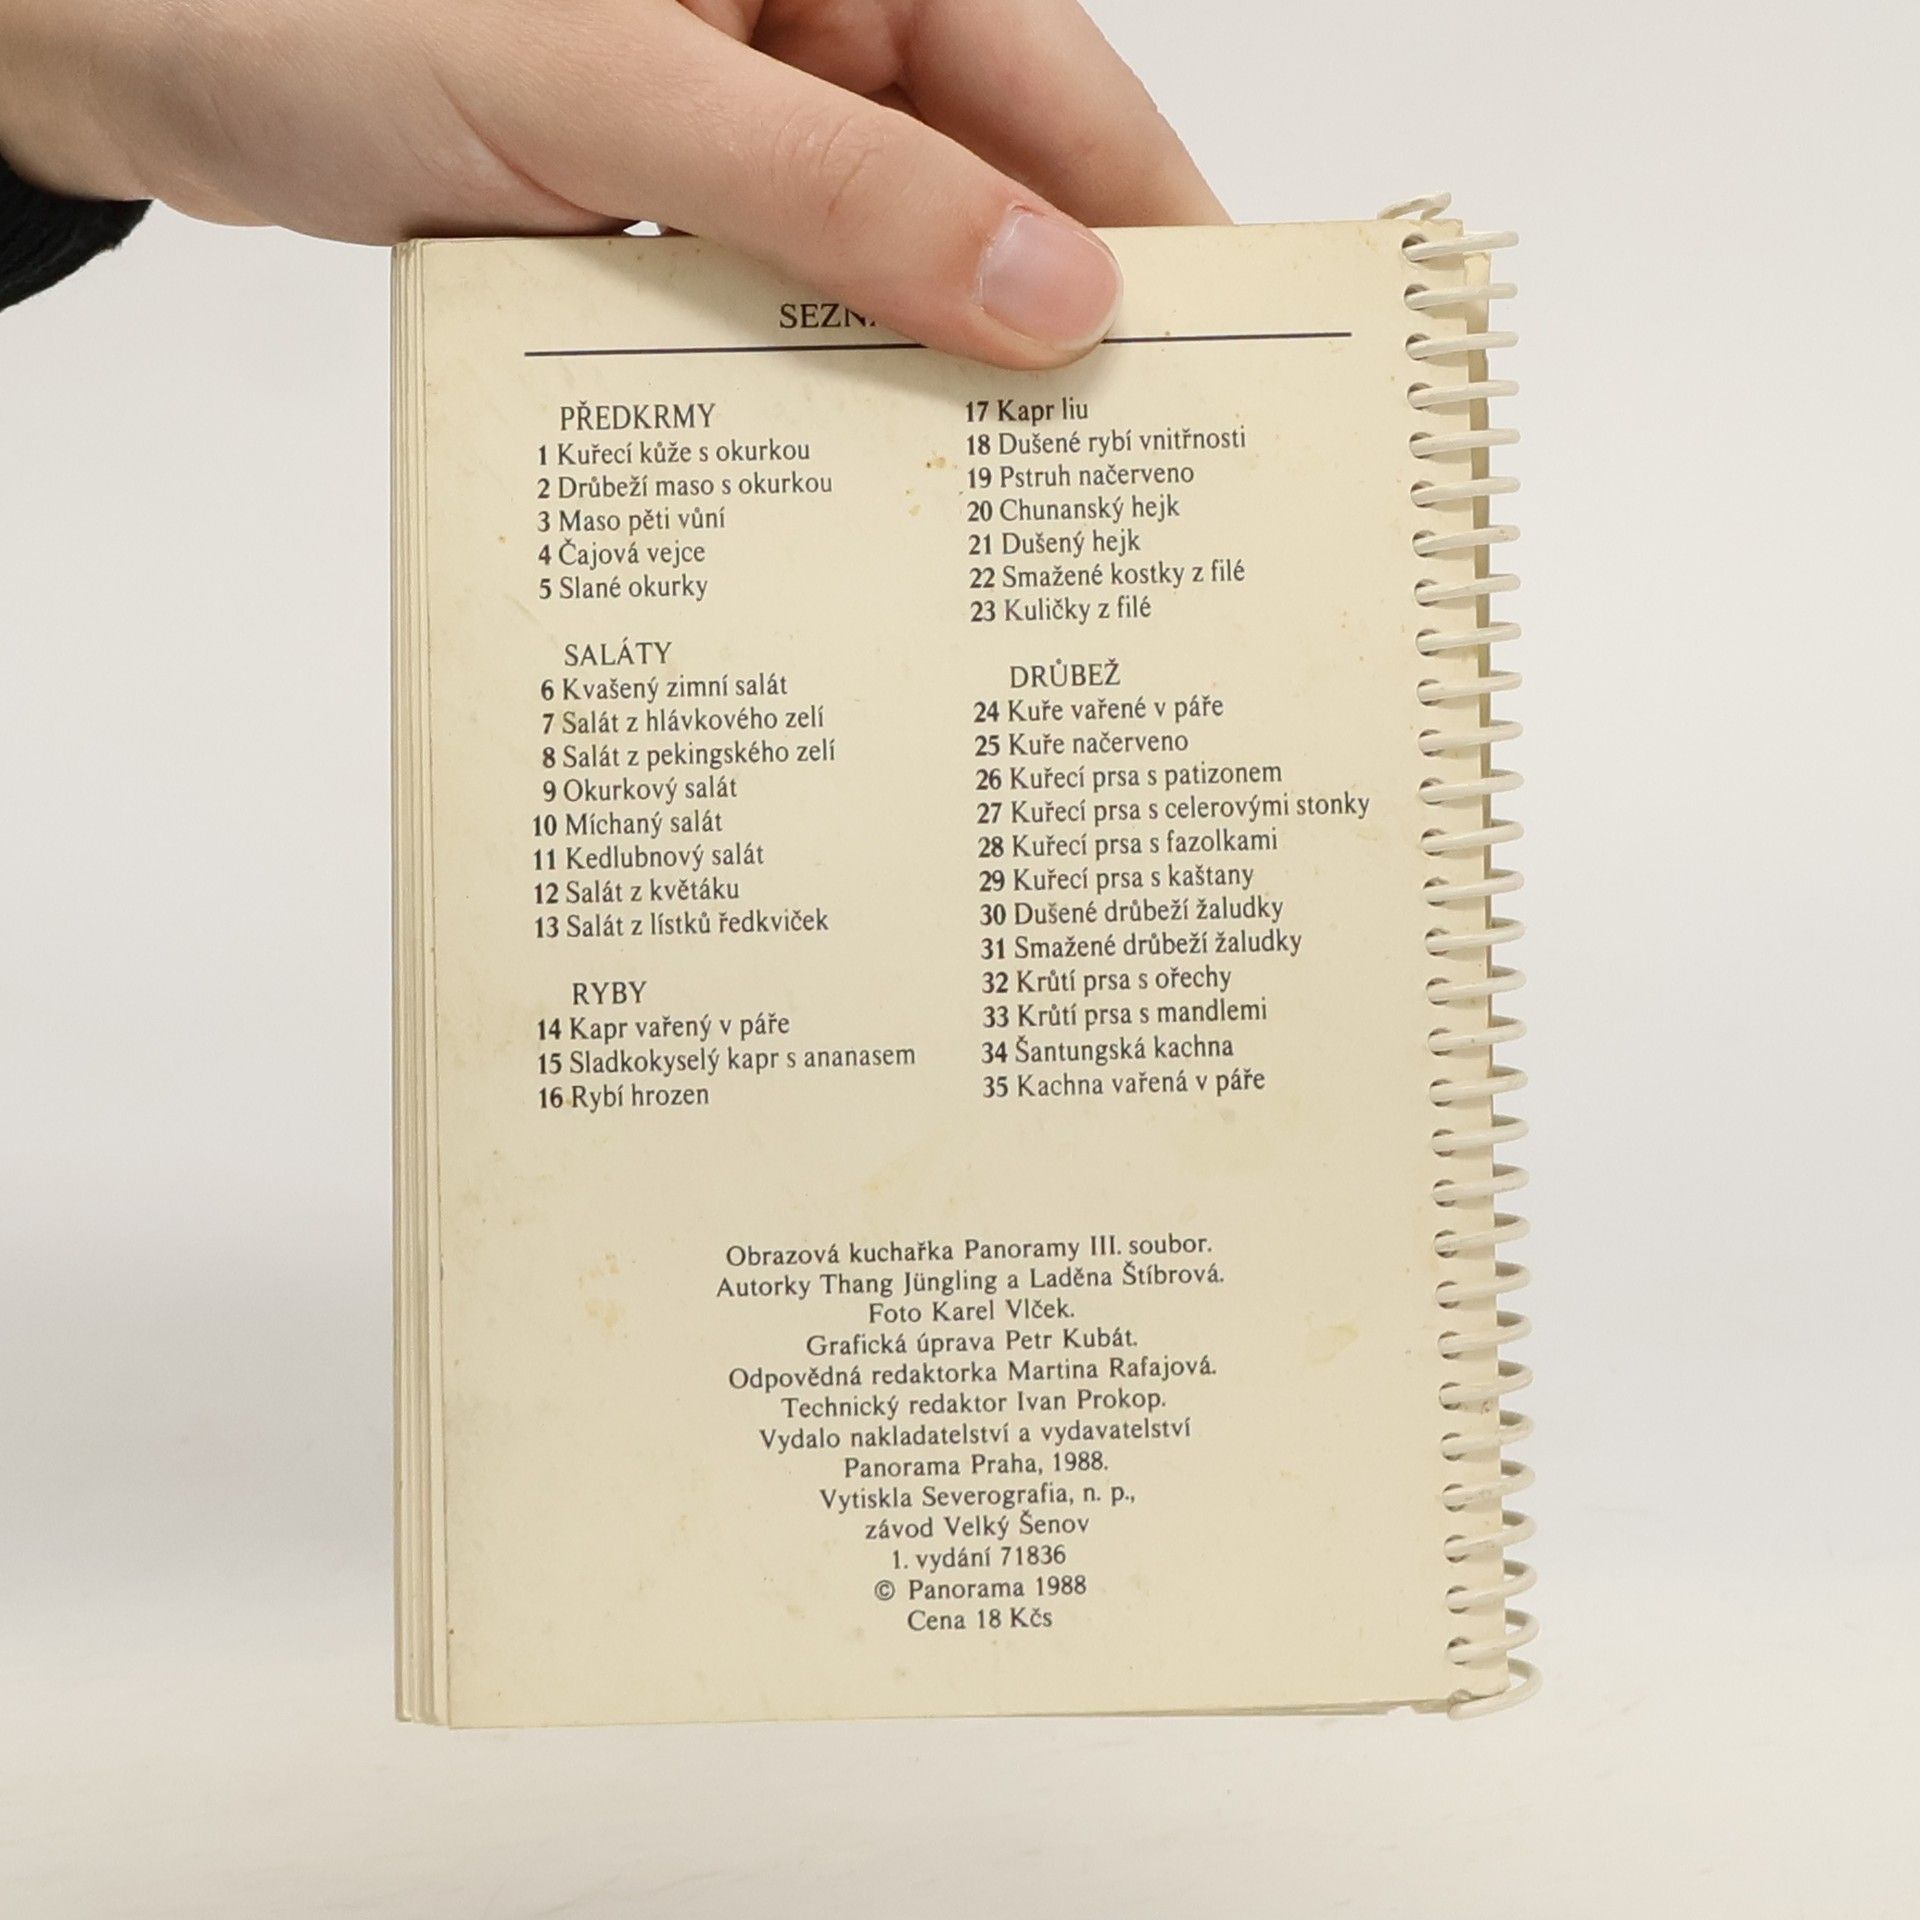 PŘEDKRMY
1 Kuřecí kůže s okurkou
2 Drůbeží maso s okurkou
3 Maso pěti vůní
4 Čajová vejce
5 Slané okurky
SALÁTY
6 Kvašený zimní salát
7 Salát z hlávkového zelí
8 Salát z pekingského zelí
9 Okurkový salát
10 Míchaný salát
11 Kedlubnový salát
12 Salát z květáku
13 Salát z lístků ředkviček
RYBY
14 Kapr vařený v páře
15 Sladkokyselý kapr s ananasem
16 Rybí hrozen
17 Kapr liu
18 Dušené rybí vnitřnosti
19 Pstruh načerveno
20 Chunanský hejk
21 Dušený hejk
22 Smažené kostky z filé
23 Kuličky z filé
DRŮBEŽ
24 Kuře vařené v páře
25 Kuře načerveno
26 Kuřecí prsa s patizonem
27 Kuřecí prsa s celerovými stonky
28 Kuřecí prsa s fazolkami
29 Kuřecí prsa s kaštany
30 Dušené drůbeží žaludky
31 Smažené drůbeží žaludky
32 Krůtí prsa s ořechy
33 Krůtí prsa s mandlemi
34 Šantungská kachna
35 Kachna vařená v páře
Obrazová kuchařka Panoramy III. soubor.
Autorky Thang Jüngling a Laděna Štíbrová.
Foto Karel Vlček.
Grafická úprava Petr Kubát.
Odpovědná redaktorka Martina Rafajová.
Technický redaktor Ivan Prokop.
Vydalo nakladatelství a vydavatelství
Panorama Praha, 1988.
Vytiskla Severografia, n. p.,
závod Velký Šenov
1. vydání 71836
© Panorama 1988
Cena 18 Kčs